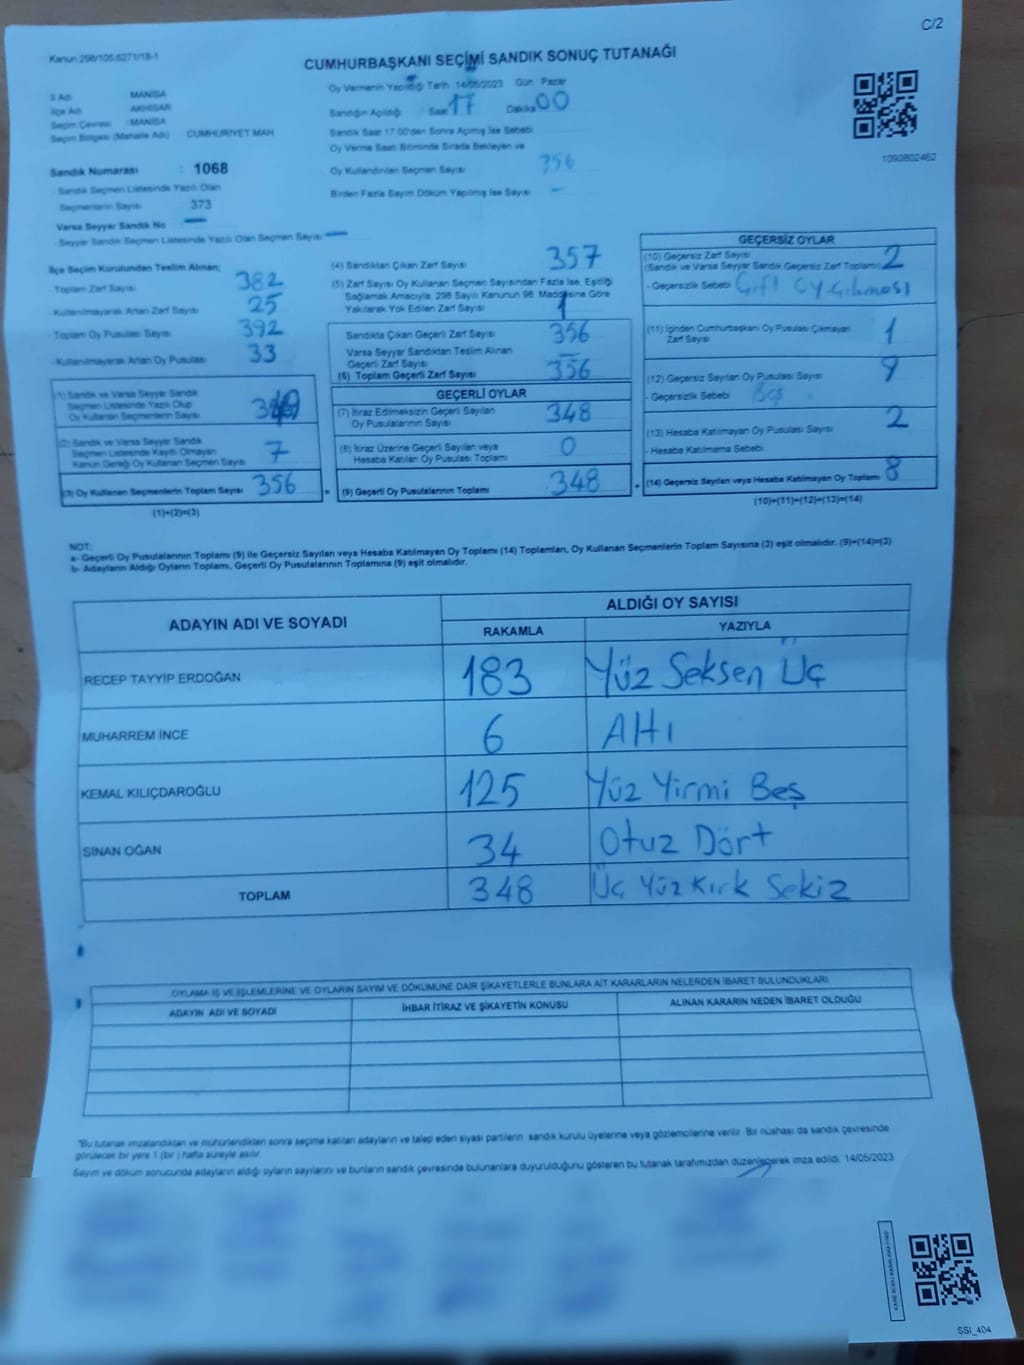 C/2
Kanun:298/105;6271/18-1
CUMHURBAŞKANI SEÇİMİ SANDIK SONUÇ TUTANAĞI
İl Adı MANİSA
İlçe Adı AKHİSAR
Seçim Çevresi : MANİSA
Seçim Bölgesi (Mahalle Adı) CUMHURİYET MAH
Sandık Numarası : 1068
- Sandık Seçmen Listesinde Yazılı Olan
Seçmenlerin Sayısı 373
Varsa Seyyar Sandık No
- Seyyar Sandık Seçmen Listesinde Yazılı Olan Seçmen Sayısı
Oy Vermenin Yapıldığı Tarih 14/05/2023 Gün Pazar
Sandığın Açıldığı Saat 17 Dakika 00
Sandık Saat 17:00'den Sonra Açılmış İse Sebebi
Oy Verme Saati Bitiminde Sırada Bekleyen ve
Oy Kullandırılan Seçmen Sayısı 356
Birden Fazla Sayım Döküm Yapılmış İse Sayısı -
1093802462
İlçe Seçim Kurulundan Teslim Alınan;
- Toplam Zarf Sayısı 382
- Kullanılmayarak Artan Zarf Sayısı 25
- Toplam Oy Pusulası Sayısı 392
- Kullanılmayarak Artan Oy Pusulası 33
(1) Sandık ve Varsa Seyyar Sandık
Seçmen Listesinde Yazılı Olup
Oy Kullanan Seçmenlerin Sayısı
(2) Sandık ve Varsa Seyyar Sandık
Seçmen Listesinde Kayıtlı Olmayan
Kanun Gereği Oy Kullanan Seçmen Sayısı 7
(3) Oy Kullanan Seçmenlerin Toplam Sayısı 356
(1)+(2)=(3)
(4) Sandıktan Çıkan Zarf Sayısı 357
(5) Zarf Sayısı Oy Kullanan Seçmen Sayısından Fazla İse, Eşitliği
Sağlamak Amacıyla, 298 Sayılı Kanunun 98. Maddesine Göre
Yakılarak Yok Edilen Zarf Sayısı 1
Sandıkta Çıkan Geçerli Zarf Sayısı 356
Varsa Seyyar Sandıktan Teslim Alınan
Geçerli Zarf Sayısı -
(6) Toplam Geçerli Zarf Sayısı 356
GEÇERLİ OYLAR
(7) İtiraz Edilmeksizin Geçerli Sayılan
Oy Pusulalarının Sayısı 348
(8) İtiraz Üzerine Geçerli Sayılan veya
Hesaba Katılan Oy Pusulası Toplamı 0
= (9) Geçerli Oy Pusulalarının Toplamı 348
GEÇERSİZ OYLAR
(10) Geçersiz Zarf Sayısı
(Sandık ve Varsa Seyyar Sandık Geçersiz Zarf Toplamı) 2
- Geçersizlik Sebebi Çift Oy Çıkması
(11) İçinden Cumhurbaşkanı Oy Pusulası Çıkmayan
Zarf Sayısı 1
(12) Geçersiz Sayılan Oy Pusulası Sayısı 9
- Geçersizlik Sebebi Boş
(13) Hesaba Katılmayan Oy Pusulası Sayısı 2
- Hesaba Katılmama Sebebi
+ (14) Geçersiz Sayılan veya Hesaba Katılmayan Oy Toplamı 8
(10)+(11)+(12)+(13)=(14)
NOT:
a- Geçerli Oy Pusulalarının Toplamı (9) ile Geçersiz Sayılan veya Hesaba Katılmayan Oy Toplamı (14) Toplamları, Oy Kullanan Seçmenlerin Toplam Sayısına (3) eşit olmalıdır. (9)+(14)=(3)
b- Adayların Aldığı Oyların Toplamı, Geçerli Oy Pusulalarının Toplamına (9) eşit olmalıdır.
ADAYIN ADI VE SOYADI ALDIĞI OY SAYISI
RAKAMLA YAZIYLA
RECEP TAYYİP ERDOĞAN 183 Yüz Seksen Üç
MUHARREM İNCE 6 Altı
KEMAL KILIÇDAROĞLU 125 Yüz Yirmi Beş
SİNAN OĞAN 34 Otuz Dört
TOPLAM 348 Üç Yüz Kırk Sekiz
OYLAMA İŞ VE İŞLEMLERİNE VE OYLARIN SAYIM VE DÖKÜMÜNE DAİR ŞİKAYETLERLE BUNLARA AİT KARARLARIN NELERDEN İBARET BULUNDUKLARI
ADAYIN ADI VE SOYADI İHBAR İTİRAZ VE ŞİKAYETİN KONUSU ALINAN KARARIN NEDEN İBARET OLDUĞU
*Bu tutanak imzalandıktan ve mühürlendikten sonra seçime katılan adayların ve talep eden siyasi partilerin sandık kurulu üyelerine veya gözlemcilerine verilir. Bir nüshası da sandık çevresinde
görülecek bir yere 1 (bir ) hafta süreyle asılır.
Sayım ve döküm sonucunda adayların aldığı oyların sayılarını ve bunların sandık çevresinde bulunanlara duyurulduğunu gösteren bu tutanak tarafımızdan düzenlenerek imza edildi. 14/05/2023
SSİ_404